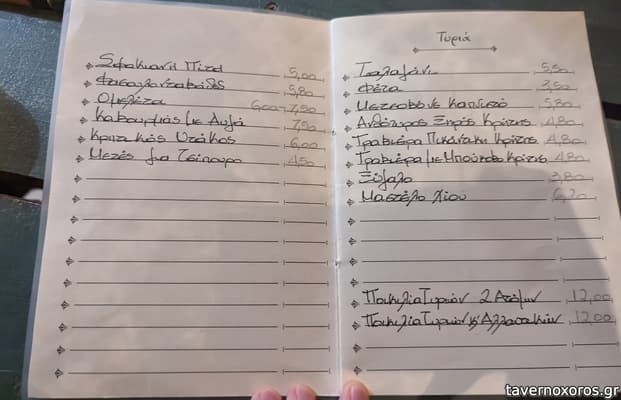 Σφακιανή Πίτα 5,00
Φασολονταβάδες 5,80
Ομελέτα 6,00-7,50
Καβουρμάς με Αυγά 7,50
Κρητικός Ντάκος 6,00
Μεζές για Τσίπουρο 4,50
Τυριά
Ταλαγάνι 5,50
Φέτα 3,50
Μετσοβόνε Καπνιστό 5,80
Ανθότυρος Ξηρός Κρήτης 4,80
Γραβιέρα Πικάντικη Κρήτης 4,80
Γραβιέρα με Μπούκοβο Κρήτης 4,80
Ξύγαλο 3,80
Μαστέλο Χίου 6,20
Ποικιλία Τυριών 2 Ατόμων 12,00
Ποικιλία Τυριών κ' Αλλαντικών 12,00
tavernoxoros.gr